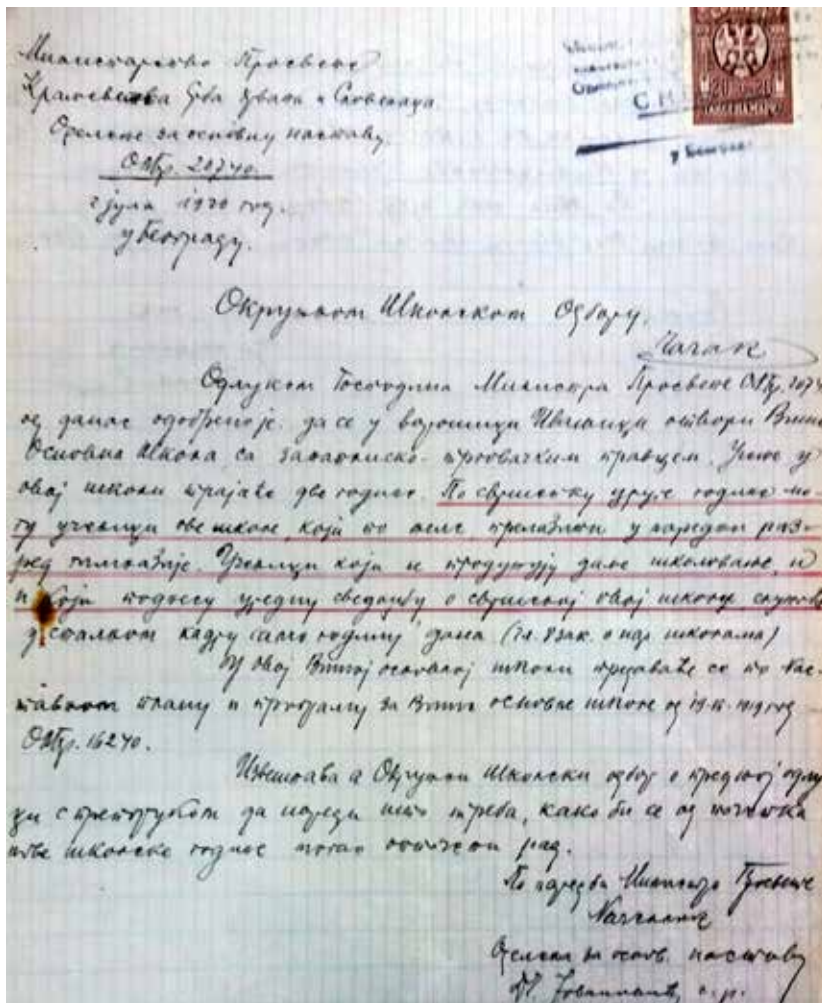 Министарство Просвете
Краљевства Срба Хрвата и Словенаца
Одељење за основну наставу
ОНбр. 20740.
2 јула 1920 год.
у Београду.
С.Н.
у Београду
Окружном Школском Одбору,
Чачак
Одлуком Господина Министра Просвете ОНбр. 2074
од данас одобрено је да се у варошици Ивањици отвори Виша
Основна Школа са занатлиско-трговачким правцем. Учење у
овој школи трајаће две године. По свршетку друге године мо-
гу ученици ове школе, који то желе, прелазити у наредни раз-
ред гимназије. Ученици који не продужују даље школовање, и
који поднесу уредну сведоџбу о свршеној овој школи служиће
у сталном кадру само годину дана (чл. 8 зак. о нар. школама)
У овој Вишој основној школи предаваће се по нас-
тавном плану и програму за Више основне школе од 1919 год
ОНбр. 16240.
Извештава се Окружни Школски одбор о предњој одлу
ци с препоруком да нареди што треба, како би се од почетка
нове школске године могао отпочети рад.
По наредби Министра Просвете
Начелник
Одељења за основ. наставу
Јовановић, с.р.